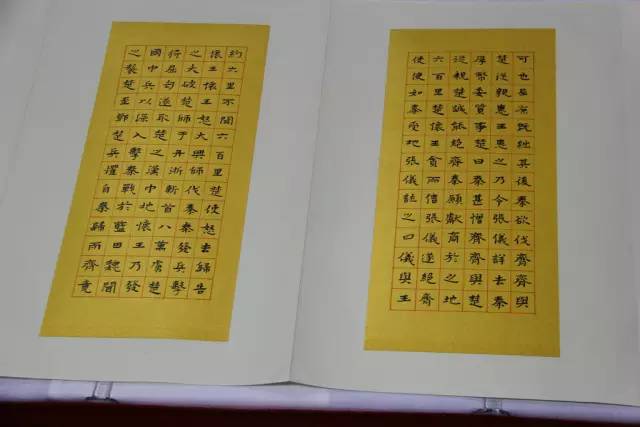 可也屈原既絀其後秦欲伐齊齊與
楚從親惠王患之乃令張儀詳去秦
厚幣委質事楚曰秦甚憎齊齊與楚
從親楚誠能絕齊秦願獻商於之地
六百里楚懷王貪而信張儀遂絕齊
使使如秦受地張儀詐之曰儀與王
約六里不聞六百里楚使怒去歸告
懷王懷王怒大興師伐秦秦發兵擊
之大破楚師于丹淅斬首八萬虜楚
將屈匄遂取楚之漢中地懷王乃發
國中兵以深入擊秦戰於藍田魏聞
之襲楚至鄧楚兵懼自秦歸而齊竟